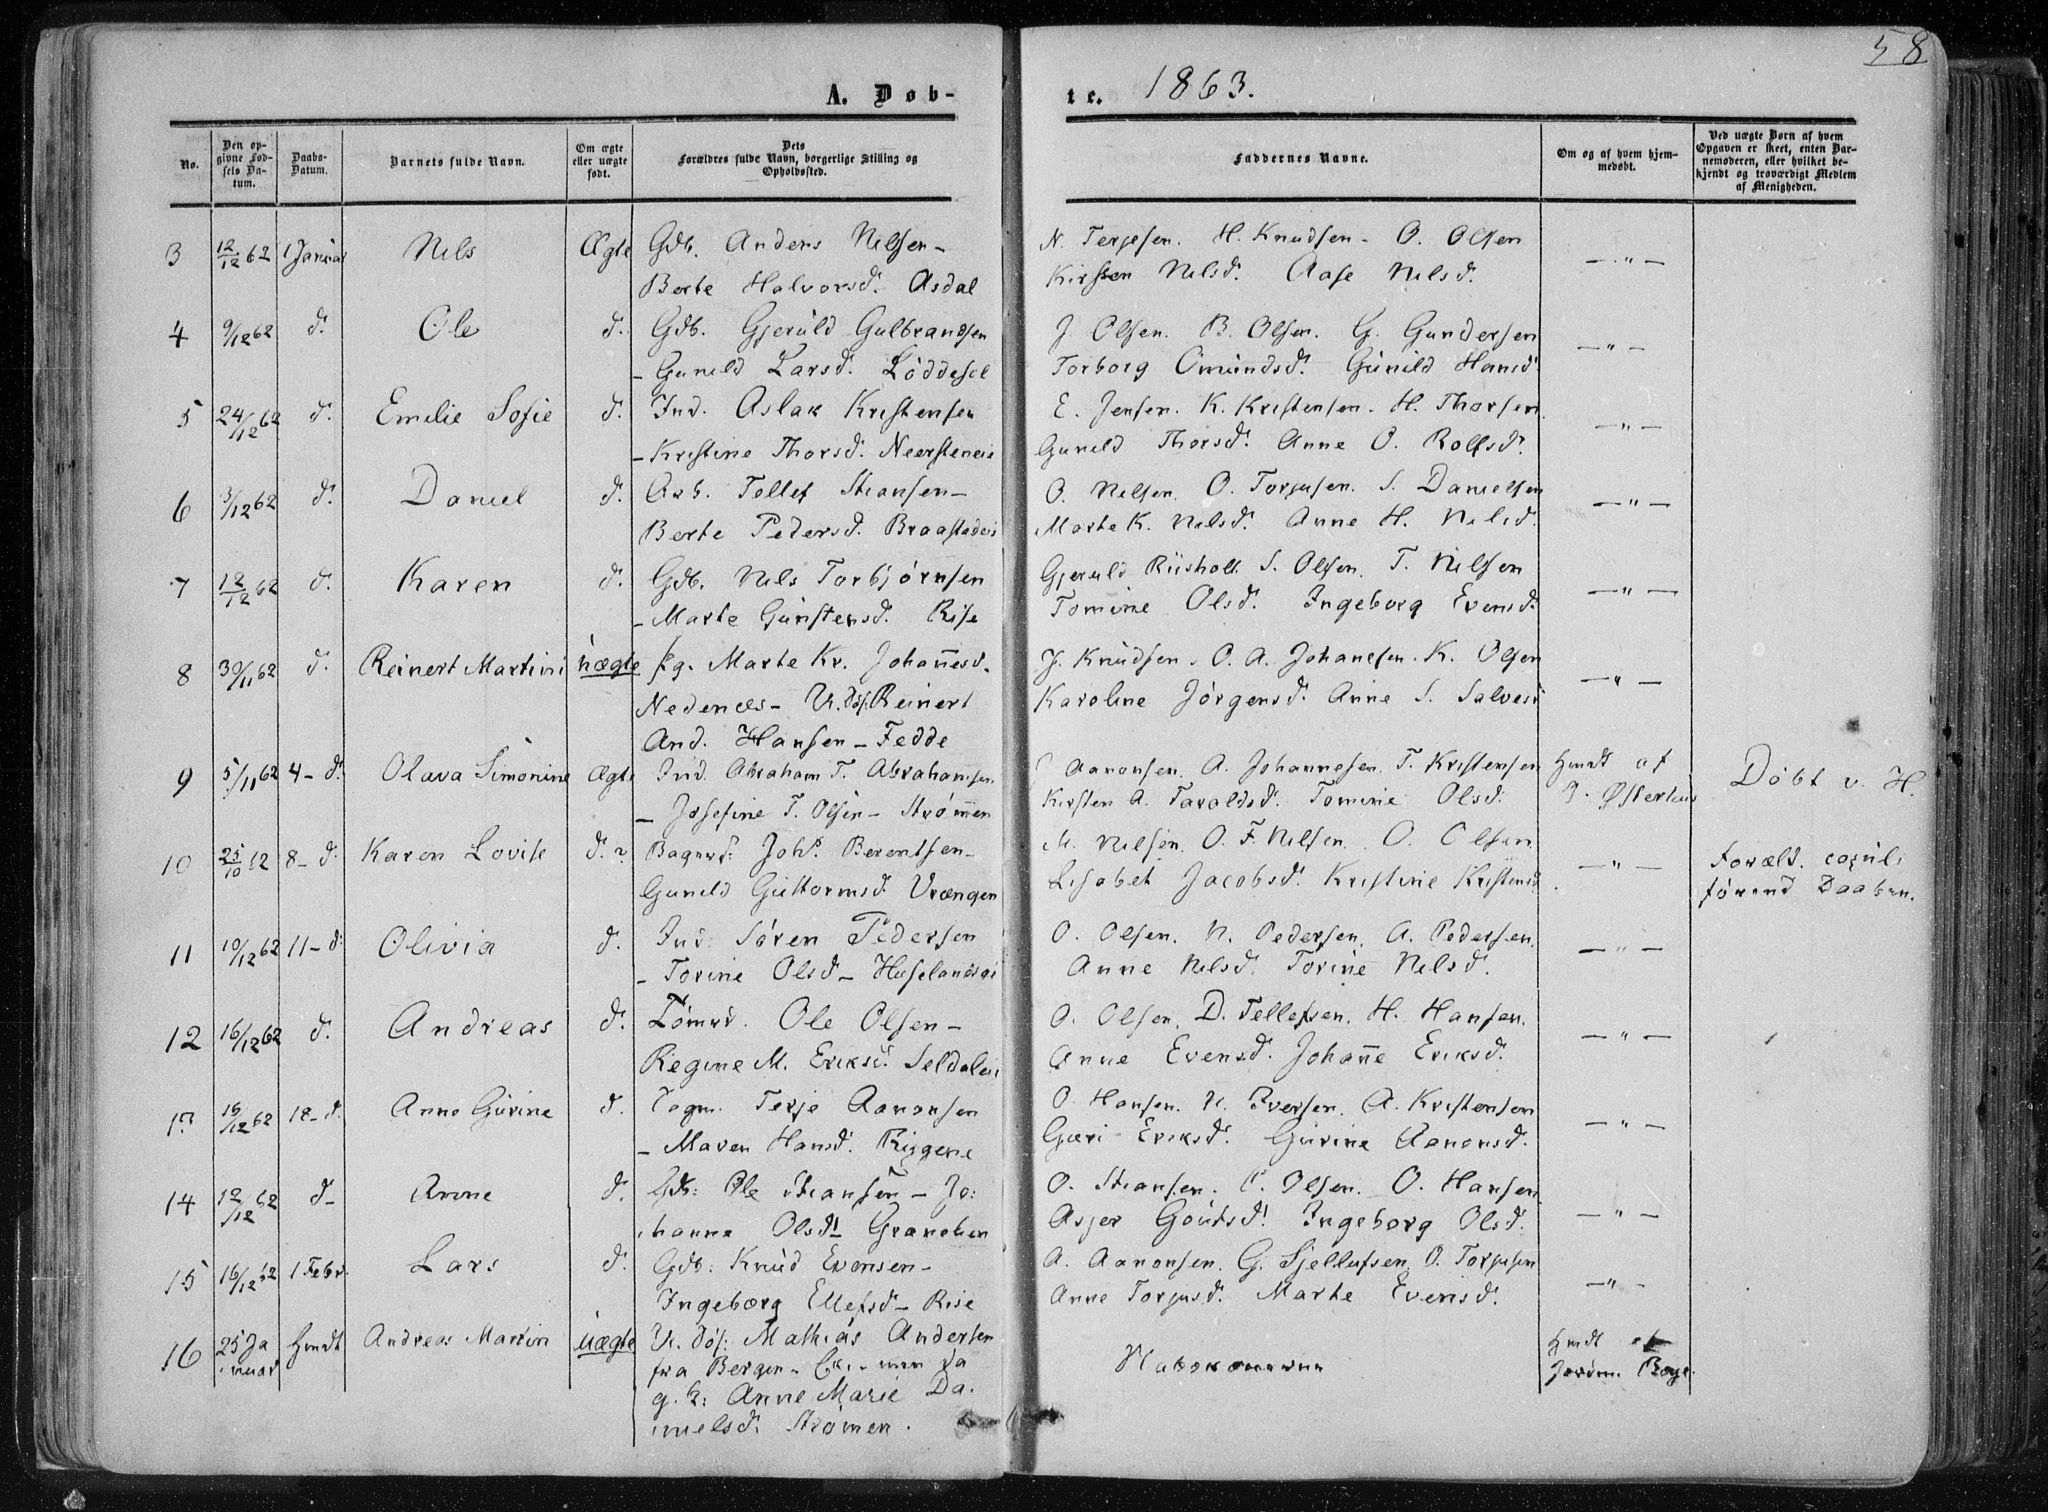 58
A. Døb-
te. 1863.
No.
Den opgivne Fødsels Datum.
Daabs-Datum.
Barnets fulde Navn.
Om ægte eller uægte født.
Dets Forældres fulde Navn, borgerlige Stilling og Opholdssted.
Faddernes Navne.
Om og af hvem hjemmedøbt.
Ved uægte Børn af hvem Opgaven er skeet, enten Barnemoderen, eller hvilket bekjendt og troværdigt Medlem af Menigheden.
3 12/12 62 1 Januar Nils Ægte Gdb. Anders Nilsen - N. Terjesen. H. Knudsen - O. Olsen — " —
Berte Halvorsd. Asdal Kirsten Nilsd. Aase Nilsd.
4 9/12 62 d. Ole d. Gdb. Gjeruld Gulbrandsen J Olsen. B. Olsen. G. Gundersen — " —
- Gunild Larsd. Løddesøl Torborg Omundsd. Gunild Hansd
5 24/12 62 d. Emilie Sofie d. Ind. Aslak Kristensen E. Jensen. K. Kristensen. H. Thorsen. — " —
- Kristine Thorsd. Neersteneie Gunild Thorsd. Anne O. Rolfsd.
6 3/12 62 d. Daniel d. Arb. Tellef Stiansen - O. Nilsen. O. Torjusen. S. Danielsen — " —
Berte Pedersd. Braastadeie Marte K. Nilsd. Anne H. Nilsd.
7 12/12 62 d. Karen d. Gdb. Nils Torbjørnsen Gjeruld Riisholt. S. Olsen. T. Nilsen — " —
- Marte Gunstensd. Rise Tomine Olsd. Ingeborg Evensd.
8 30/11 62 d. Reinert Martini uægte Pg. Marte Kr. Johannesd. J. Knudsen. O. A. Johansen. K. Olsen — " —
Nedenæs - U. Søf. Reinert Karoline Jørgensd. Anne S. Salvesd
And. Hansen - Fedde
9 5/11 62 4 - d. Olava Simonine Ægte Ind. Abraham T. Abrahamsen Aanonsen. A. Johannesen. T. Kristensen Hmdt af Døbt v. H.
- Josefine T. Olsen - Strømmen Kirsten A. Taraldsd. Tomine Olsd. J. Østerhus
10 25/10 62 8 - d. Karen Lovise d. Bagers. Johs. Berentsen - M. Nilsen. O. F. Nilsen. O. Olsen — " — Foræld. copul.
Gunild Guttormsd. Vrængen Lisabet Jacobsd. Kristine Kristensd. førend Daaben.
11 10/12 62 11 - d. Olivia d. Ind. Søren Pedersen O. Olsen. N. Pedersen. A. Pedersen. — " —
- Torine Olsd - Huselandseie Anne Nilsd. Torine Nilsd.
12 16/12 62 d. Andreas d. Tømrs. Ole Olsen - O. Olsen. D. Tellefsen. H. Hansen. — " —
Regine M. Eriksd. Seldalen Anne Evensd. Johanne Eriksd.
13 15/12 62 18 - d. Anne Gurine d. Togm. Terje Aanonsen O. Hansen. N. Iversen. A. Kristensen — " —
- Maren Hansd. Riggene Guri Eriksd. Gurine Aanonsd.
14 12/12 62 d - Anne d. Gdb: Ole Stiansen - Jo: O. Stiansen. O. Olsen. O. Hansen — " —
hanne Olsd - Granehen Asjer Goutsd. Ingeborg Olsd.
15 16/12 62 1 Febr. Lars d. Gdb: Knud Evensen - A. Aanonsen. G. Sjellufsen O. Torjusen — " —
Ingeborg Ellefsd - Rise Anne Torjusd. Marte Evensd.
16 25 Ja Hmdt Andreas Martin uægte U. Søf: Mathias Andersen Hmdt af
nuar fra Bergen - Jorøm. Boye.
g. K: Anne Marie Da
nielsd. Strømen.